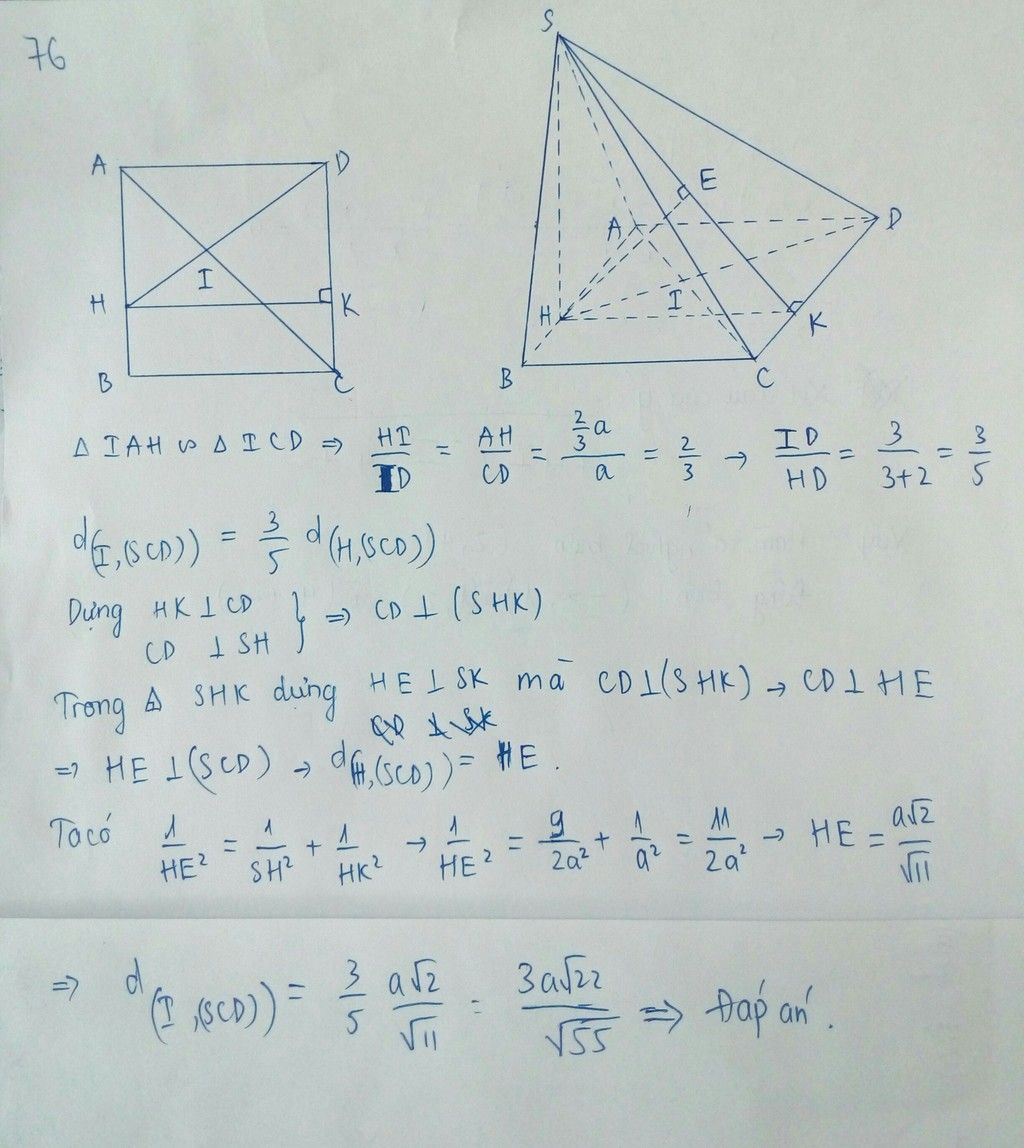 76
S
A D
E
A D
I
H K
H I K
B C
B C
Δ IAH ∽ Δ ICD ⇒ HI/ID = AH/CD = (2/3 a)/a = 2/3 → ID/HD = 3/(3+2) = 3/5
d(I,(SCD)) = 3/5 d(H,(SCD))
Dựng HK ⊥ CD
CD ⊥ SH } ⇒ CD ⊥ (SHK)
Trong Δ SHK dựng HE ⊥ SK mà CD ⊥ (SHK) → CD ⊥ HE
⇒ HE ⊥ (SCD) → d(H,(SCD)) = HE.
Ta có 1/HE² = 1/SH² + 1/HK² → 1/HE² = 9/2a² + 1/a² = 11/2a² → HE = a√2/√11
⇒ d(I,(SCD)) = 3/5 a√2/√11 = 3a√22/√55 ⇒ Đáp án.